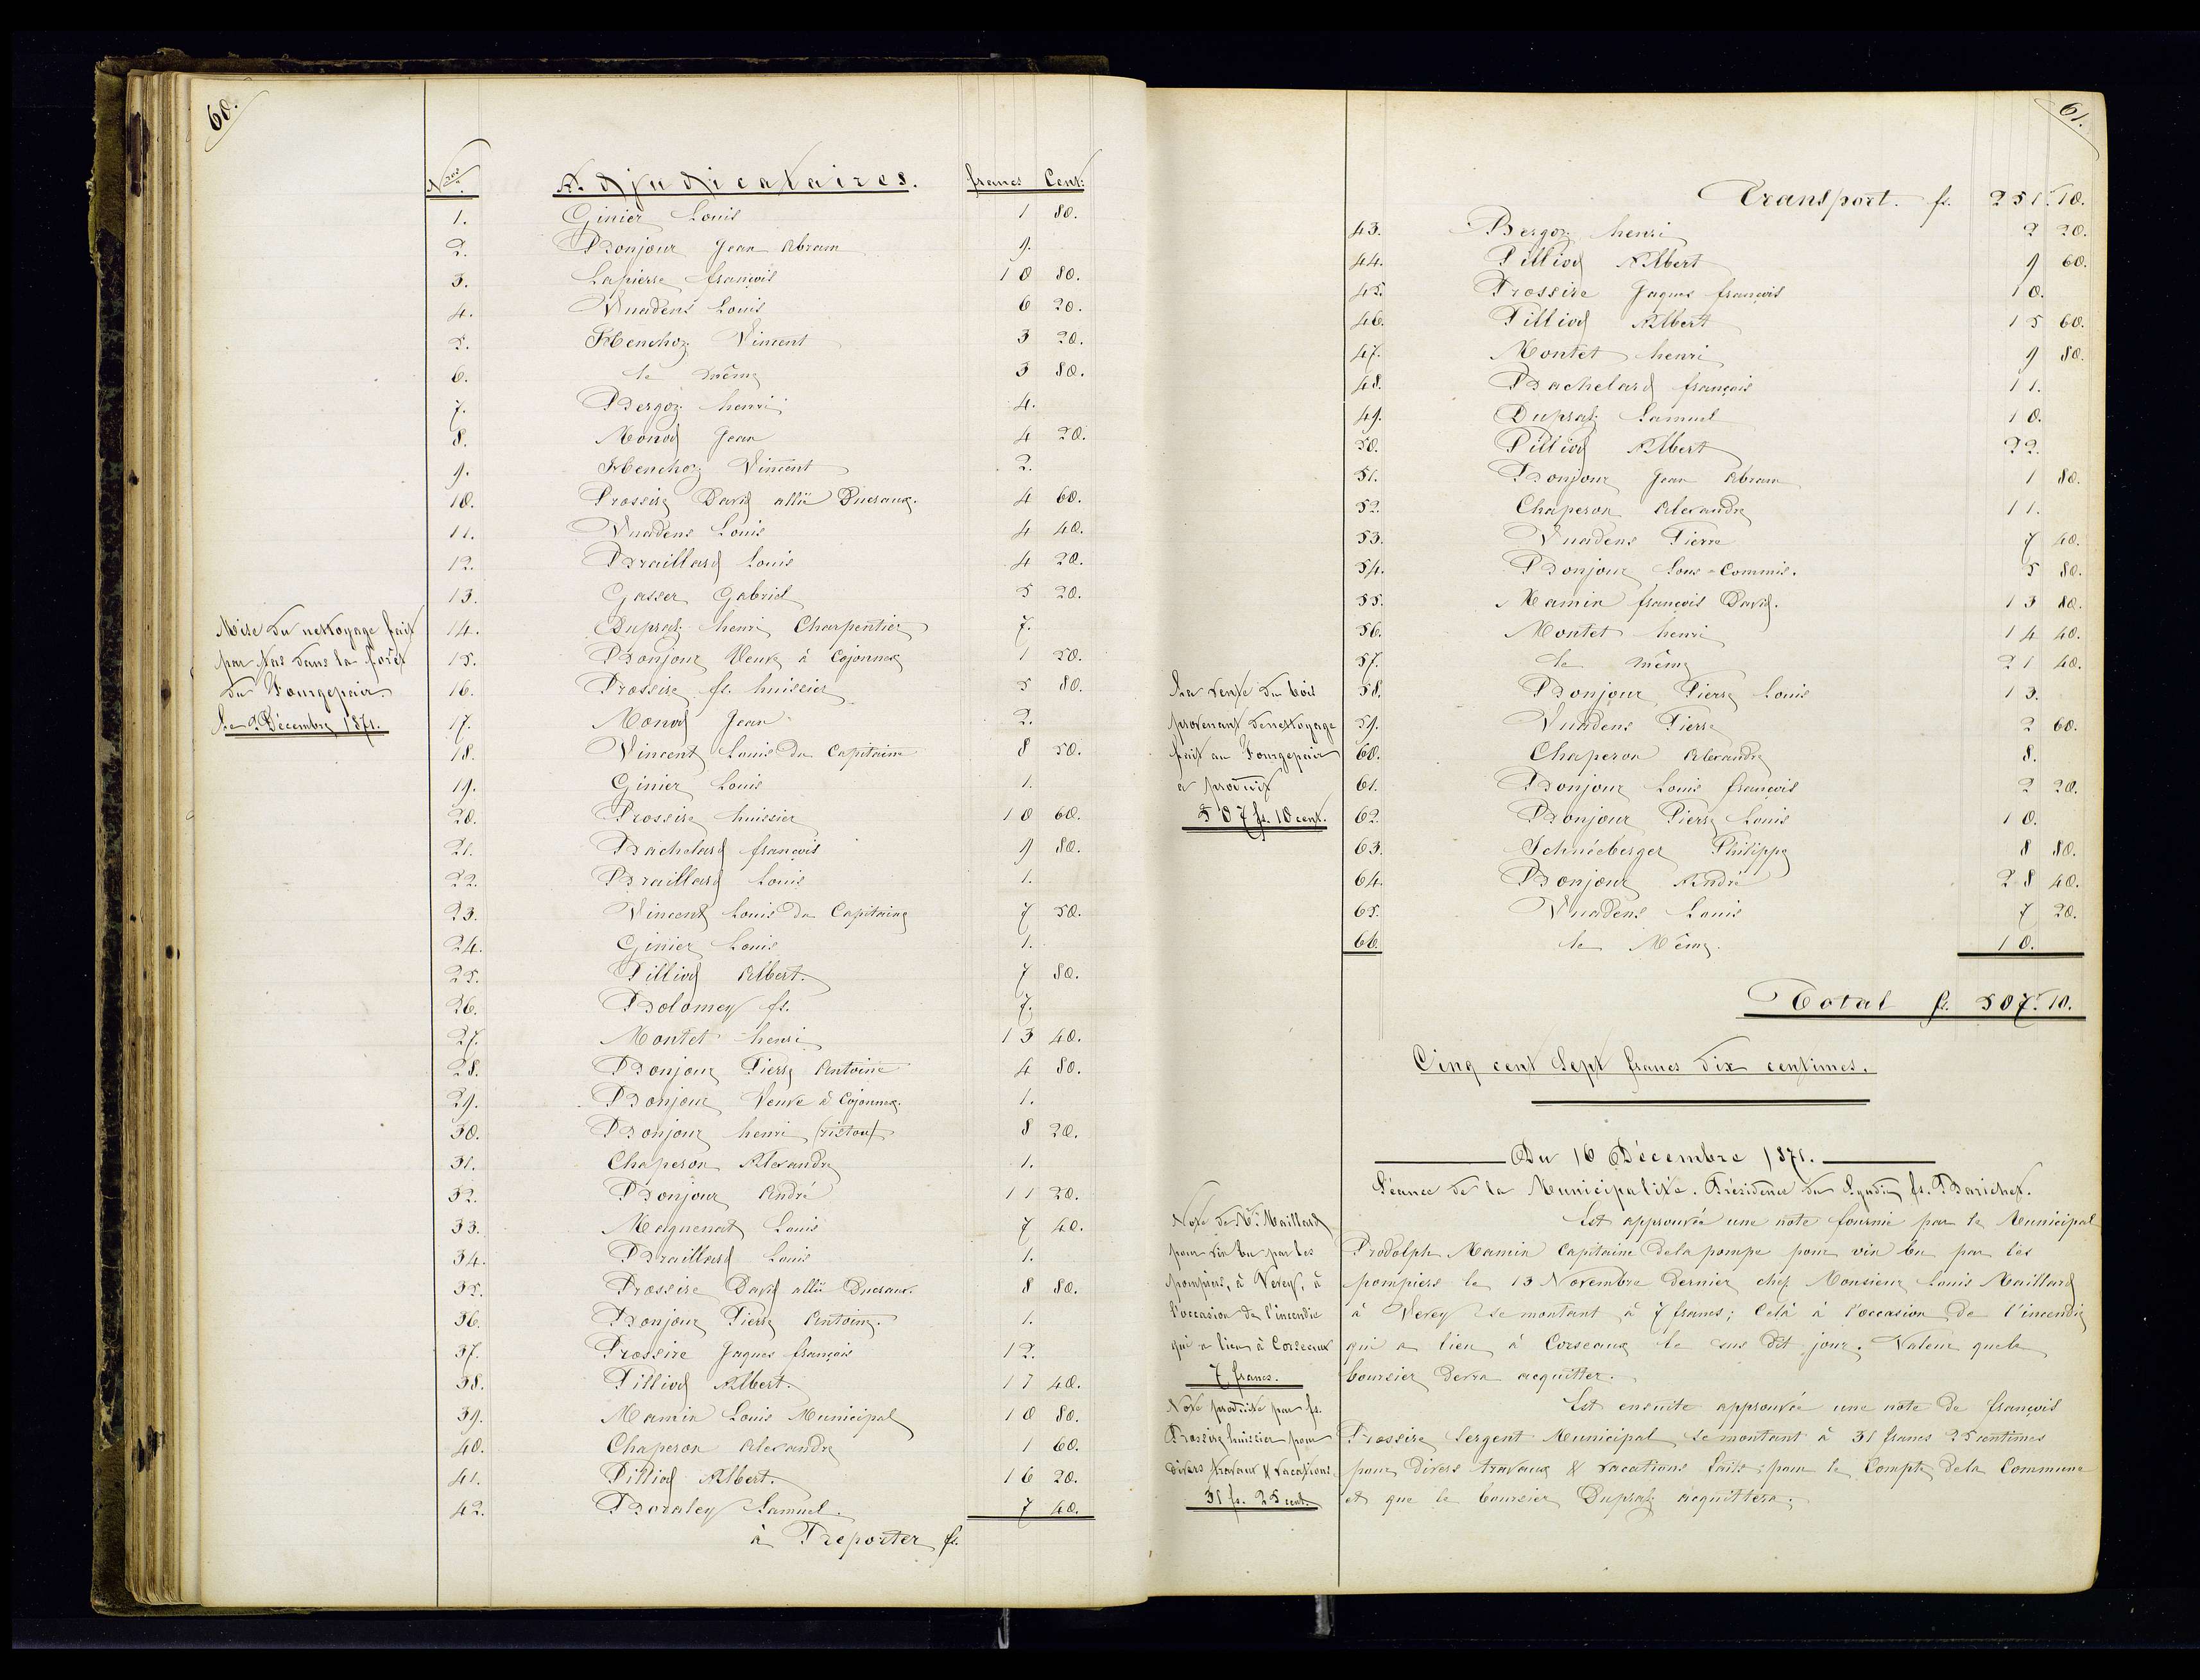 60.
N.ros Adjudicataires. francs Cent:
1. Ginier Louis 1 80.
2. Bonjour Jean Abram 9.
3. Lapierre françois 10 80.
4. Vuadens Louis 6 20.
5. Henchoz Vincent 3 20.
6. le même 3 80.
7. Bergoz henri 4.
8. Monod Jean 4 20.
9. Henchoz Vincent 2.
10. Rossire David allié Ducraux. 4 60.
11. Vuadens Louis 4 40.
12. Braillard Louis 4 20.
13. Gasser Gabriel 5 20.
14. Dupraz henri Charpentier 7.
15. Bonjour Veuve à Cojonnex 1 50.
16. Rossire fs. huissier 5 80.
17. Monod Jean 2.
18. Vincent Louis du Capitaine 8 50.
19. Ginier Louis 1.
20. Rossire huissier 10 60.
21. Bachelard françois 9 80.
22. Braillard Louis 1.
23. Vincent Louis du Capitaine 7 50.
24. Ginier Louis 1.
25. Pilliod Albert. 7 80.
26. Bolomey fs. 7.
27. Montet henri 13 40.
28. Bonjour Pierre Antoine 4 80.
29. Bonjour Veuve à Cojonnex. 1.
30. Bonjour henri (riston) 8 20.
31. Chaperon Alexandre 1.
32. Bonjour André 11 20.
33. Magnenat Louis 7 40.
34. Braillard Louis 1.
35. Rossire David allié Ducraux. 8 80.
36. Bonjour Pierre Antoine. 1.
37. Rossire Jaques françois 12.
38. Pilliod Albert. 17 40.
39. Mamin Louis Municipal 10 80.
40. Chaperon Alexandre 1 60.
41. Pilliod Albert. 16 20.
42. Bovaley Samuel. 7 40.
à Reporter fs.
Mise du nettoyage fait
par pas dans la forêt
du Fourgepair
Le 2 Décembre 1871.
61.
Transport. fs. 251. 10.
43. Bergoz henri 2 20.
44. Pilliod Albert 9 60.
45. Rossire Jaques françois 10.
46. Pilliod Albert 15 60.
47. Montet henri 9 80.
48. Bachelard françois 11.
49. Dupraz Samuel 10.
50. Pilliod Albert 22.
51. Bonjour Jean Abram 1 80.
52. Chaperon Alexandre 11.
53. Vuadens Pierre 7 40.
54. Bonjour Sous-Commis. 5 80.
55. Mamin françois David. 13 80.
56. Montet henri 14 40.
57. le même 21 40.
58. Bonjour Pierre Louis 13.
59. Vuadens Pierre 2 60.
60. Chaperon Alexandre 8.
61. Bonjour Louis françois 2 20.
62. Bonjour Pierre Louis 10.
63. Schnéeberger Philippe 8 80.
64. Bonjour André 28 40.
65. Vuadens Louis 7 20.
66. le Même. 10.
Total fs. 507. 10.
La vente du bois
provenant de nettoyage
fait au Fourgepair
a produit
507 fs. 10 cent.
Cinq cent Sept francs dix centimes.
Du 16 Décembre 1871.
Séance de la Municipalité. Présidence du Syndic fs. Barichet.
Est approuvée une note fournie par le Municipal
Rodolph Mamin Capitaine de la pompe pour vin bu par les
pompiers le 13 Novembre dernier chez Monsieur Louis Maillard
à Vevey se montant à 7 francs; Celà à l'occasion de l'incendie
qui a lieu à Corseaux le sus dit jour. Valeur que le
boursier devra acquitter.
Note de Mr. Maillard
pour vin bu par les
pompiers, à Vevey, à
l'occasion de l'incendie
qui a lieu à Corseaux
7 francs.
Est ensuite approuvée une note de françois
Rossire Sergent Municipal se montant à 31 francs 25 centimes
pour divers travaux & vacations faits pour le Compte de la Commune
et que le boursier Dupraz acquittera.
Note produite par fs.
Rossire huissier pour
divers travaux & vacations
31 fs. 25 cent.